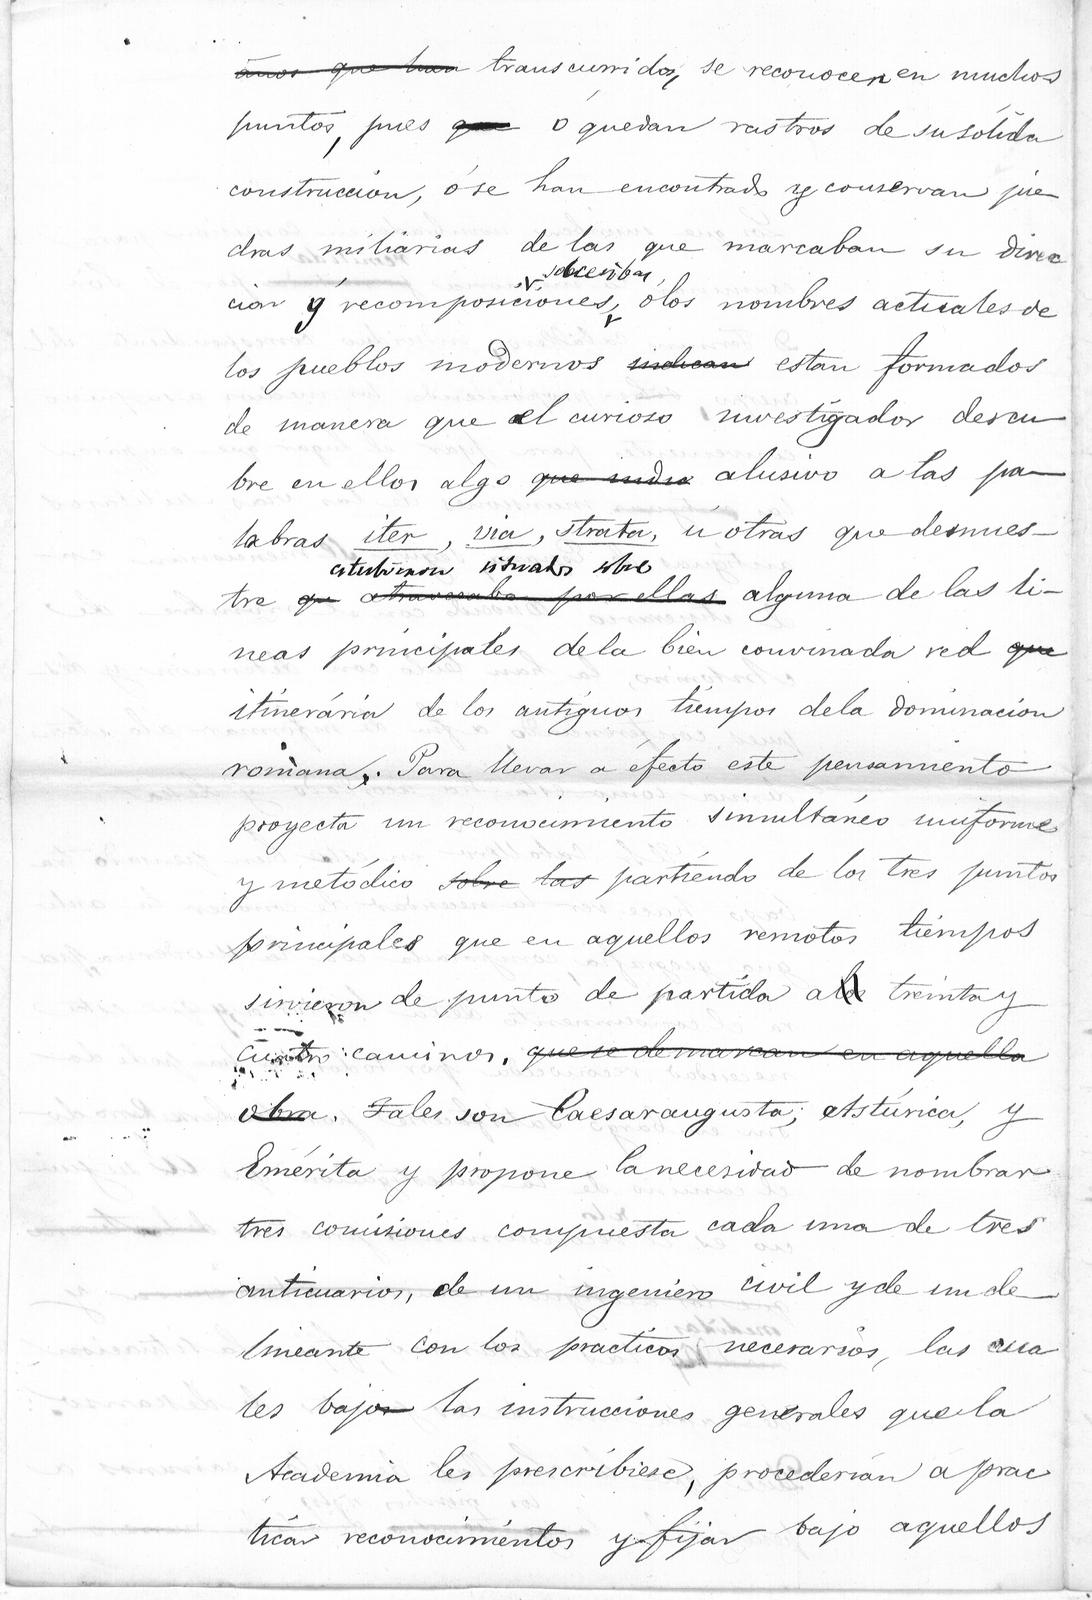 años que han transcurridos, se reconocen en muchos
puntos, pues que ó quedan rastros de su sólida
construccion, ó se han encontrado y conservan pie
dras miliarias de las que marcaban su direc
sucesibas
cion y recomposiciones, ó los nombres actuales de
los pueblos modernos indican estan formados
de manera que el curioso investigador descu
bre en ellos algo que indica alusivo a las pa-
labras iter, via, strata, ú otras que demues-
estubieron situados sobre
tre que atravesaba por ellas alguna de las li-
neas principales de la bien convinada red que
itineraria de los antiguos tiempos dela dominacion
romana. Para llevar a efecto este pensamiento
proyecta un reconocimiento simultáneo uniforme
y metódico sobre las partiendo de los tres puntos
principales que en aquellos remotos tiempos
sirvieron de punto de partida a los treinta y
cuatro caminos, que se demarcan en aquella
obra. Tales son Caesaraugusta, Astúrica, y
Emérita y propone la necesidad de nombrar
tres comisiones compuesta cada una de tres
anticuarios, de un ingeniero civil y de un de-
lineante con los practicos necesarios, las cua
les bajo las instrucciones generales que la
Academia les prescribiese, procederian a prac
ticar reconocimientos y fijar bajo aquellos